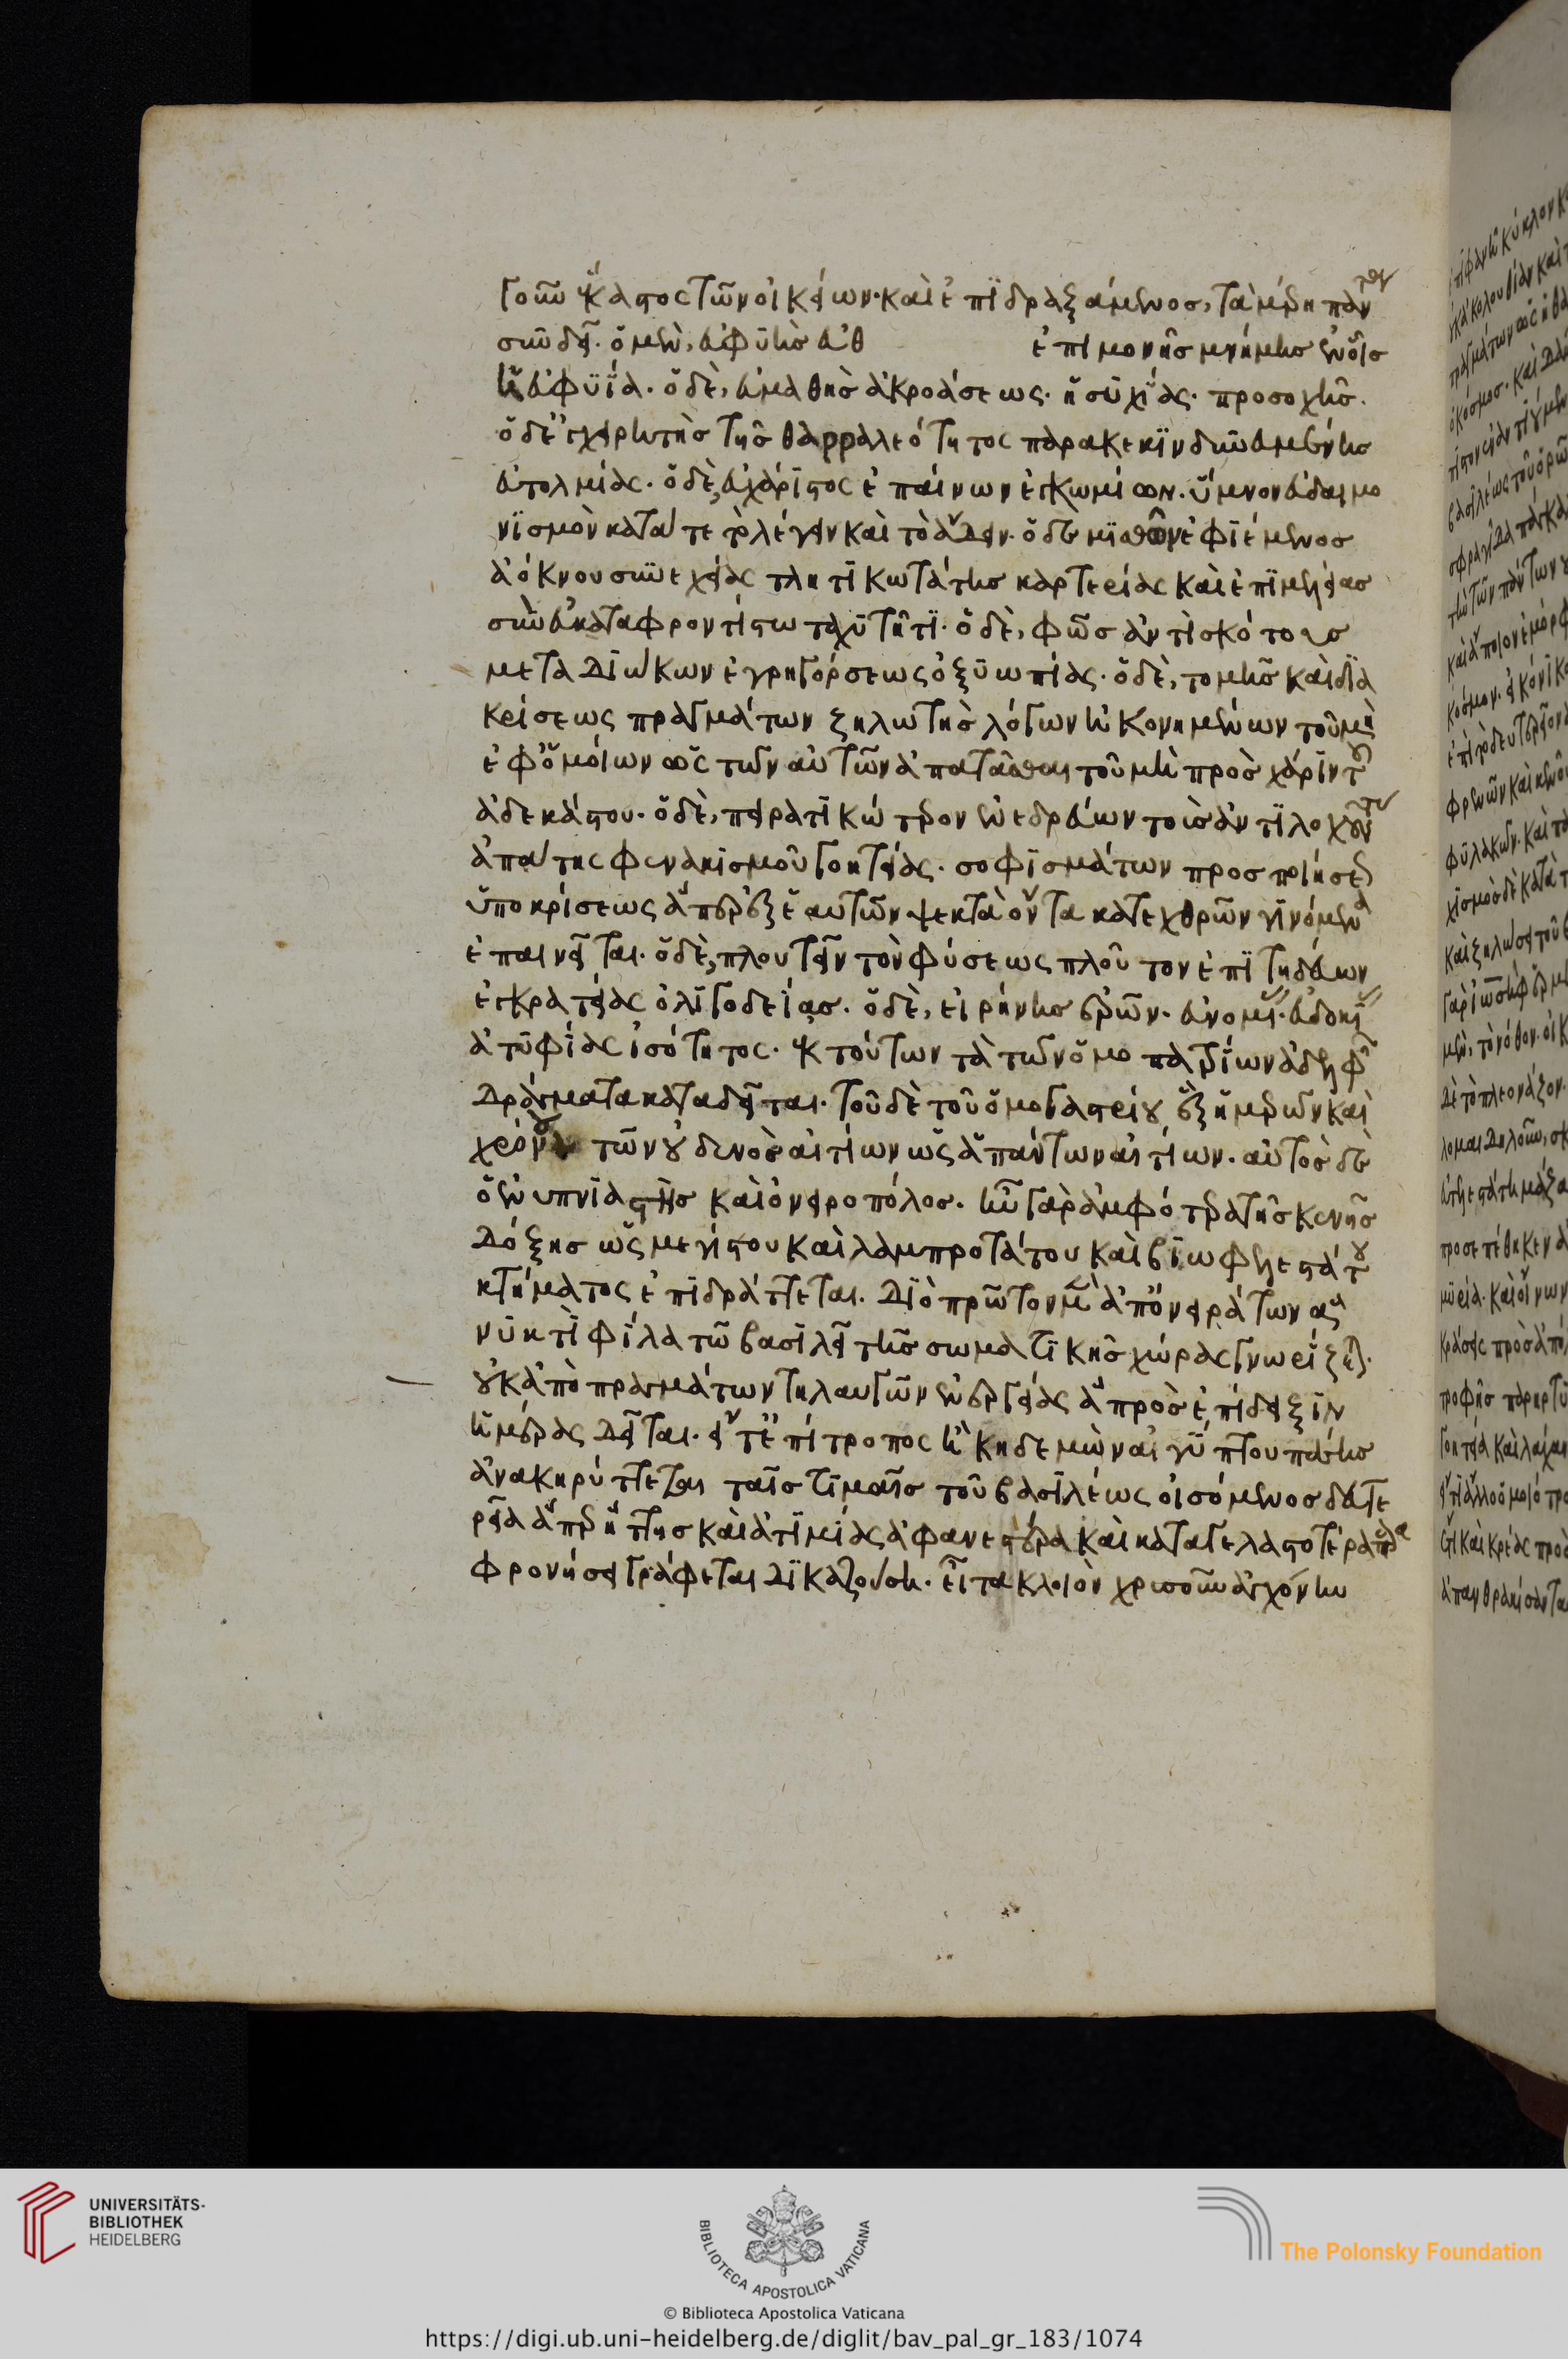 γοῦν ἕκαστος τῶν οἰκείων· καὶ ἐπιδραξάμενος, τὰ μέρη πάντων
συνδεῖ. ὁ μὲν, εὐφυὴς εὐθ ἐπιμονῆς μνήμης ἐν οἷς
ἡ εὐφυΐα. ὁ δὲ, εὐμαθὴς ἀκροάσεως. ἡσυχίας. προσοχῆς.
ὁ δ' ἐγχειρητὴς τῆς θαρραλεότητος παρακεκινδυνευμένης
εὐτολμίας. ὁ δὲ, εὐχάριστος ἐπαίνων ἐγκωμίων. ὕμνον εὐδαιμο
νισμὸν κατά τε τὸ λέγειν καὶ τὸ ἄδειν. ὁ δὲ μισθῶν ἐφιέμενος
ἀόκνου συνεχείας τλητικωτάτης καρτερίας καὶ ἐπιμελείας
σὺν εὐκαταφροντίστω ταχυτῆτι. ὁ δὲ, φῶς ἀντὶ σκότους
μεταδιώκων ἐγρηγόρσεως ὀξυωπίας. ὁ δὲ, τομῆς καὶ δια
κρίσεως πραγμάτων ζηλωτὴς λόγων ἠκονημένων τοῦ μὴ
ἐφ' ὁμοίων ὡς τῶν αὐτῶν ἀπατᾶσθαι τοῦ μὴ πρὸς χάριν τοῦ
ἀδεκάστου. ὁ δὲ, πειρατικώτερον ἐνεδρεύων τοῖς ἀντιλοχοῦσιν
ἀπάτης φενακισμοῦ γοητείας. σοφισμάτων προσποιήσεως
ὑποκρίσεως ἅπερ ἐξ ἑαυτῶν ψεκτὰ ὄντα κατ' ἐχθρῶν γινόμενα
ἐπαινεῖται. ὁ δὲ, πλουτεῖν τὸν φύσεως πλοῦτον ἐπιτηδεύων
ἐγκρατείας ὀλιγοδείας. ὁ δὲ, εἰρήνης ἐρῶν. εὐνομίας. εὐδικίας
ἀτυφίας ἰσότητος. ἐκ τούτων τὰ τῶν ὁμοπατρίων ἀδελφῶν
δράγματα καταδεῖται. τοῦ δὲ τοῦ ὁμογαστρίου ἐξ ἡμερῶν καὶ
χρόνων τῶν οὐδενὸς αἰτίων ὡς ἁπάντων αἰτίων. αὐτὸς δὲ
ὁ ἐνυπνιαστὴς καὶ ὀνειροπόλος. ἦν γὰρ ἀμφότερα τῆς κενῆς
δόξης ὡς μεγίστου καὶ λαμπροτάτου καὶ βιωφελεστάτου
κτήματος ἐπιδράττεται. διὸ πρῶτον μὲν ἀπ' ὀνειράτων ἃ
νυκτὶ φίλα τῶ βασιλεῖ τῆς σωματικῆς χώρας γνωρίζεται.
οὐκ ἀπὸ πραγμάτων τηλαυγῶν ἐνεργείας ἃ πρὸς ἐπίδειξιν
ἡμέρας δεῖται. εἶτ' ἐπίτροπος ἢ κηδεμὼν αἰγύπτου πάσης
ἀνακηρύττεται ταῖς τιμαῖς τοῦ βασιλέως οἰσόμενος δευτε
ρεῖα ἃ περ ἥττης καὶ ἀτιμίας ἀφανέστερα καὶ καταγελαστότερα παρὰ
φρονήσει γράφεται δικαζούση. εἶτα κλοιὸν χρυσοῦν ἀγχόνην
UNIVERSITÄTS-
BIBLIOTHEK
HEIDELBERG
BIBLIOTECA APOSTOLICA VATICANA
The Polonsky Foundation
© Biblioteca Apostolica Vaticana
https://digi.ub.uni-heidelberg.de/diglit/bav_pal_gr_183/1074